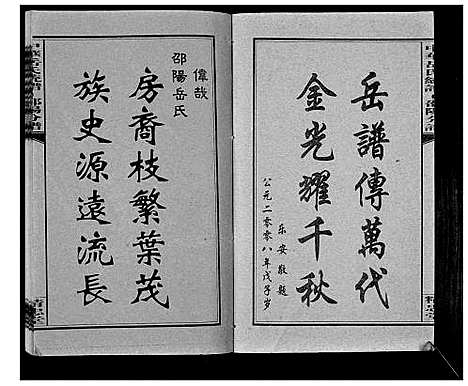 岳譜傳萬代
金光耀千秋
东安敬题
公元二零零八年戊子岁
偉哉
邵陽岳氏
房裔枝繁葉茂
族史源遠流長